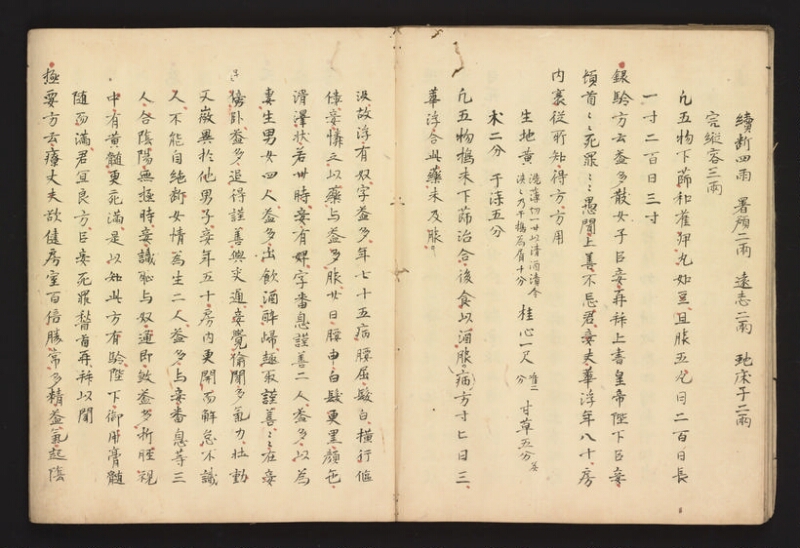 續斷四兩 署預二兩 遠志二兩 虵床子二兩
完縱容三兩
凡五物下篩和雀卵丸如豆旦服五丸日二百日長
一寸二百日三寸
録驗方云益多散女子臣妾再拜上書皇帝陛下臣妾
頓首〻死罪〻〻愚聞上善不忌君妾夫華浮年八十房
内衰從所知得方方用
生地黄 洗薄切一廿以清酒漬令浹〻乃干擣為屑十分 桂心一尺 准二分 甘草五分 炙
朮二分 干漆五分
凡五物擣末下篩治合後食以酒服方寸匕日三
華浮合此藥未及服
没故浮有奴字益多年七十五病腰屈髮白横行傴
僂妾憐之以藥与益多服廿日腰申白髮更黑顔色
滑澤状若卅時妾有婢字番息謹善二人益多以為
妻生男女四人益多出飲酒醉歸趣取謹善〻〻在妾
傍卧益多追得謹善與交通妾覺偷聞多氣力壮動
又微異於他男子妾年五十房内更開而解怠不識
人不能自絶断女情為生二人益多与妾番息等三
人合陰陽無極時妾識恥与奴通即敓益多折脛視
中有黄髄更充滿是以知此方有驗陛下御用膏髄
随而滿君宜良方臣妾死罪稽首再拜以聞
極要方云療丈夫欲健房室百倍勝常多精益氣起陰